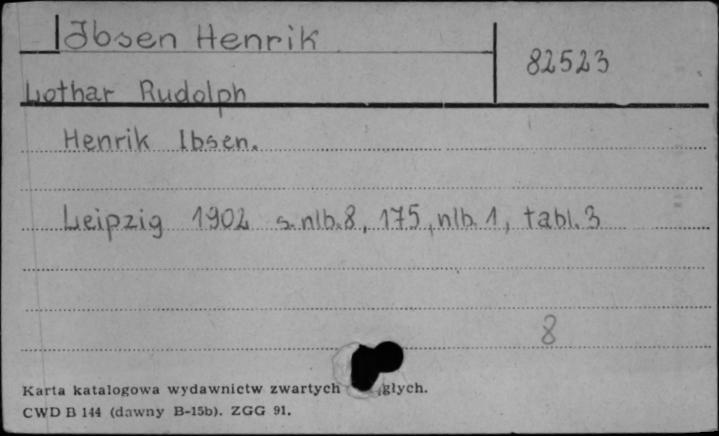 Ibsen Henrik
82523
Lothar Rudolph
Henrik Ibsen.
Leipzig 1902 s. nlb. 8, 175, nlb. 1, tabl. 3
8
Karta katalogowa wydawnictw zwartych głych.
CWD B 144 (dawny B-15b). ZGG 91.